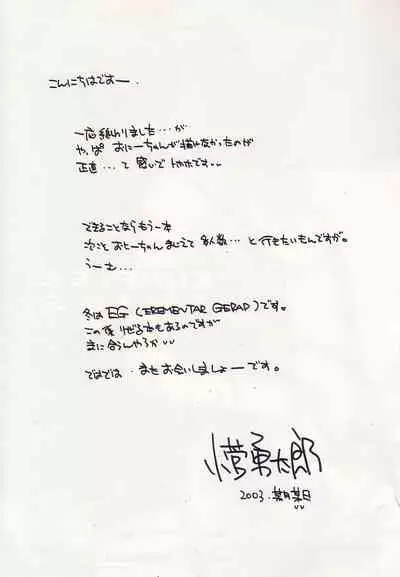 こんにちはですー.
一応終わりました…が
やっぱ おにーちゃんが描けなかったのが
正直…て感じで トホホです…
できることならもう一本
次こそ おとーちゃんまじえて 多人数… と行きたいもんですが。
うーむ…
冬は EG (EREMENTAR GERAD) です。
この後 リゼる本もあるのですが
まに合うんやろか
ではでは、またお会いしましょーです。
小菅勇太郎
2003.某月某日